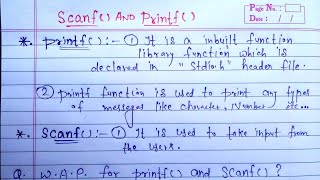 Scanf() AND Printf()
Page No. :
Date : / /
*. Printf() :- ① It is a inbuilt function
library function which is
declared in "Stdio.h" header file.
② printf function is used to print any types
of messeges like character, Number etc...
*. Scanf() :- ① It is used to take input from
the users.
Q. W.A.P. for printf() and Scanf() ?